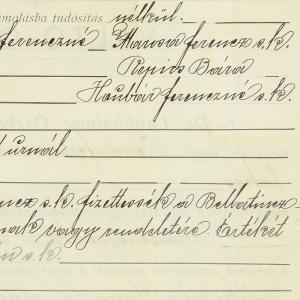 ámolásba tudósítás nélkül.
ferenczné Marosa ferencz s.k.
Repids Bára
Haubár ferenczné s.k.
urnál
ncz s.k. fizettessék a Bellatincz
nak vagy rendeletére. Értékét
s.k.